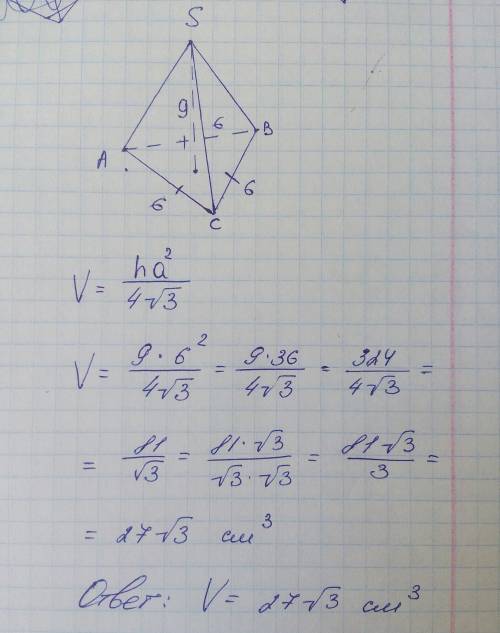 S
9
6
B
A
6
6
C
V = ha²/4√3
V = 9·6²/4√3 = 9·36/4√3 = 324/4√3 =
= 81/√3 = 81·√3/√3·√3 = 81√3/3 =
= 27√3 см³
Ответ: V = 27√3 см³